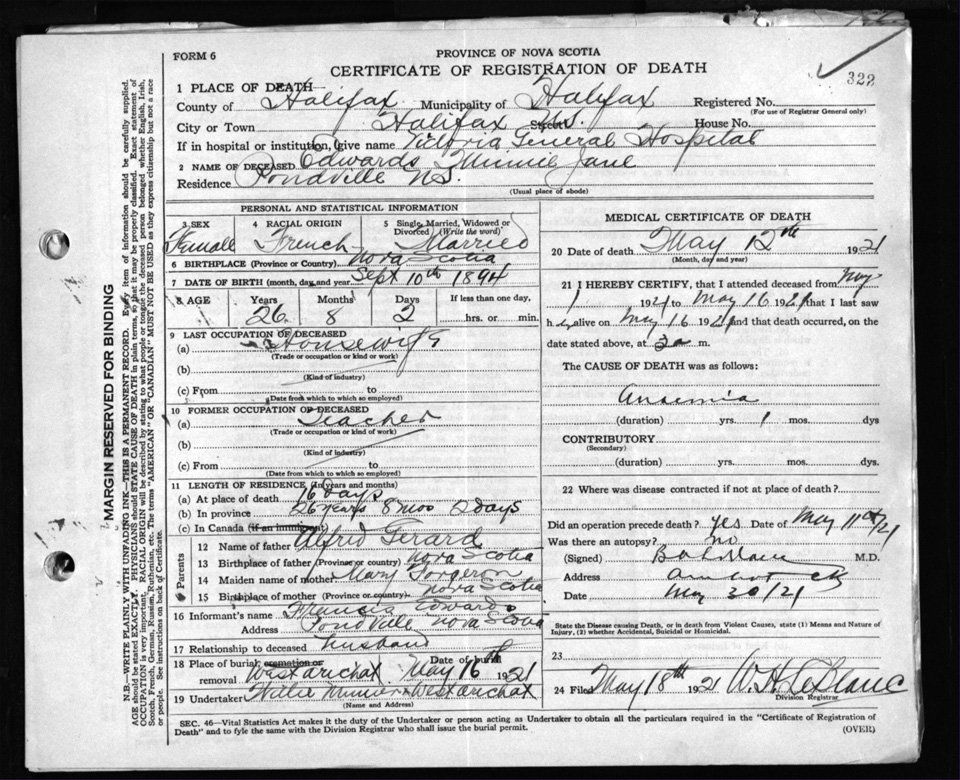 FORM 6
PROVINCE OF NOVA SCOTIA
CERTIFICATE OF REGISTRATION OF DEATH
322
1 PLACE OF DEATH
County of Halifax Municipality of Halifax Registered No.
(For use of Registrar General only)
City or Town Halifax Street House No.
If in hospital or institution, give name Victoria General Hospital
2 NAME OF DECEASED Edwards Minnie Jane
Residence Pondville N.S.
(Usual place of abode)
PERSONAL AND STATISTICAL INFORMATION
3 SEX 4 RACIAL ORIGIN 5 Single, Married, Widowed or Divorced (Write the word)
Female French Married
6 BIRTHPLACE (Province or Country) Nova Scotia
7 DATE OF BIRTH (month, day, and year) Sept 10th 1894
8 AGE Years Months Days If less than one day,
26 8 2 hrs. or min.
9 LAST OCCUPATION OF DECEASED
(a) Housewife
(Trade or occupation or kind of work)
(b)
(Kind of industry)
(c) From to
(Date from which to which so employed)
10 FORMER OCCUPATION OF DECEASED
(a) Teacher
(Trade or occupation or kind of work)
(b)
(Kind of industry)
(c) From to
(Date from which to which so employed)
11 LENGTH OF RESIDENCE (In years and months)
(a) At place of death 16 days
(b) In province 26 years 8 mos 2 days
(c) In Canada (if an immigrant)
Parents
12 Name of father Alfred Gerard
13 Birthplace of father (Province or country) Nova Scotia
14 Maiden name of mother Mary Forgeron
15 Birthplace of mother (Province or country) Nova Scotia
16 Informant's name Francis Edwards
Address Pondville Nova Scotia
17 Relationship to deceased husband
18 Place of burial, cremation or removal West Arichat Date of burial May 16th 1921
19 Undertaker Munier West Arichat
(Name and Address)
MEDICAL CERTIFICATE OF DEATH
20 Date of death May 12th 1921
(Month, day and year)
21 I HEREBY CERTIFY, that I attended deceased from May
1 1921 to May 16 1921 that I last saw
h alive on May 16 1921 and that death occurred, on the
date stated above, at 3 a m.
The CAUSE OF DEATH was as follows:
Anaemia
(duration) yrs. 1 mos. dys
CONTRIBUTORY
(Secondary)
(duration) yrs. mos. dys.
22 Where was disease contracted if not at place of death?
Did an operation precede death? yes Date of May 11th/21
Was there an autopsy? no
(Signed) M.D.
Address
Date May 30/21
State the Disease causing Death, or in death from Violent Causes, state (1) Means and Nature of Injury, (2) whether Accidental, Suicidal or Homicidal.
23
24 Filed May 18th 1921 W. H. LeBlanc
Division Registrar
SEC. 46—Vital Statistics Act makes it the duty of the Undertaker or person acting as Undertaker to obtain all the particulars required in the "Certificate of Registration of
Death" and to fyle the same with the Division Registrar who shall issue the burial permit.
(OVER)
MARGIN RESERVED FOR BINDING
N.B.—WRITE PLAINLY WITH UNFADING INK—THIS IS A PERMANENT RECORD. Every item of information should be carefully supplied.
AGE should be stated EXACTLY. PHYSICIANS should STATE CAUSE OF DEATH in plain terms, so that it may be properly classified. Exact statement of
OCCUPATION is very important. RACIAL ORIGIN will be described by stating to what people or tongue the deceased person belonged whether English, Irish,
Scotch, French, German, Russian, Ruthenian, etc. The terms "AMERICAN" OR "CANADIAN" MUST NOT BE USED as they express citizenship but not a race
or people. See instructions on back of Certificate.